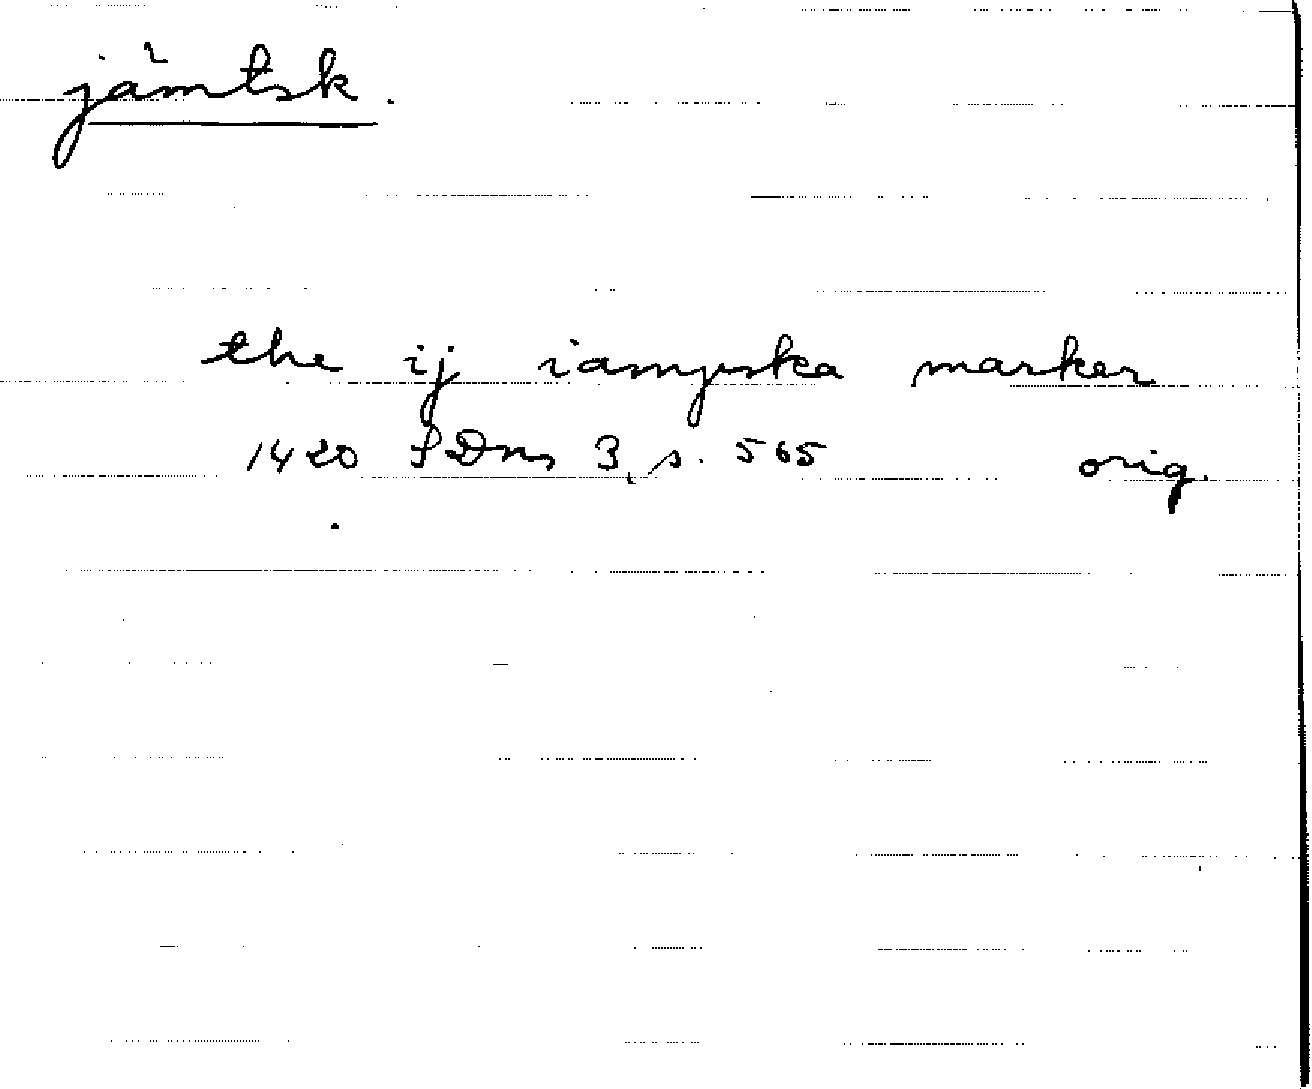 jämtsk.
the ij iampska marker
1420 SDns 3, s. 565 orig.